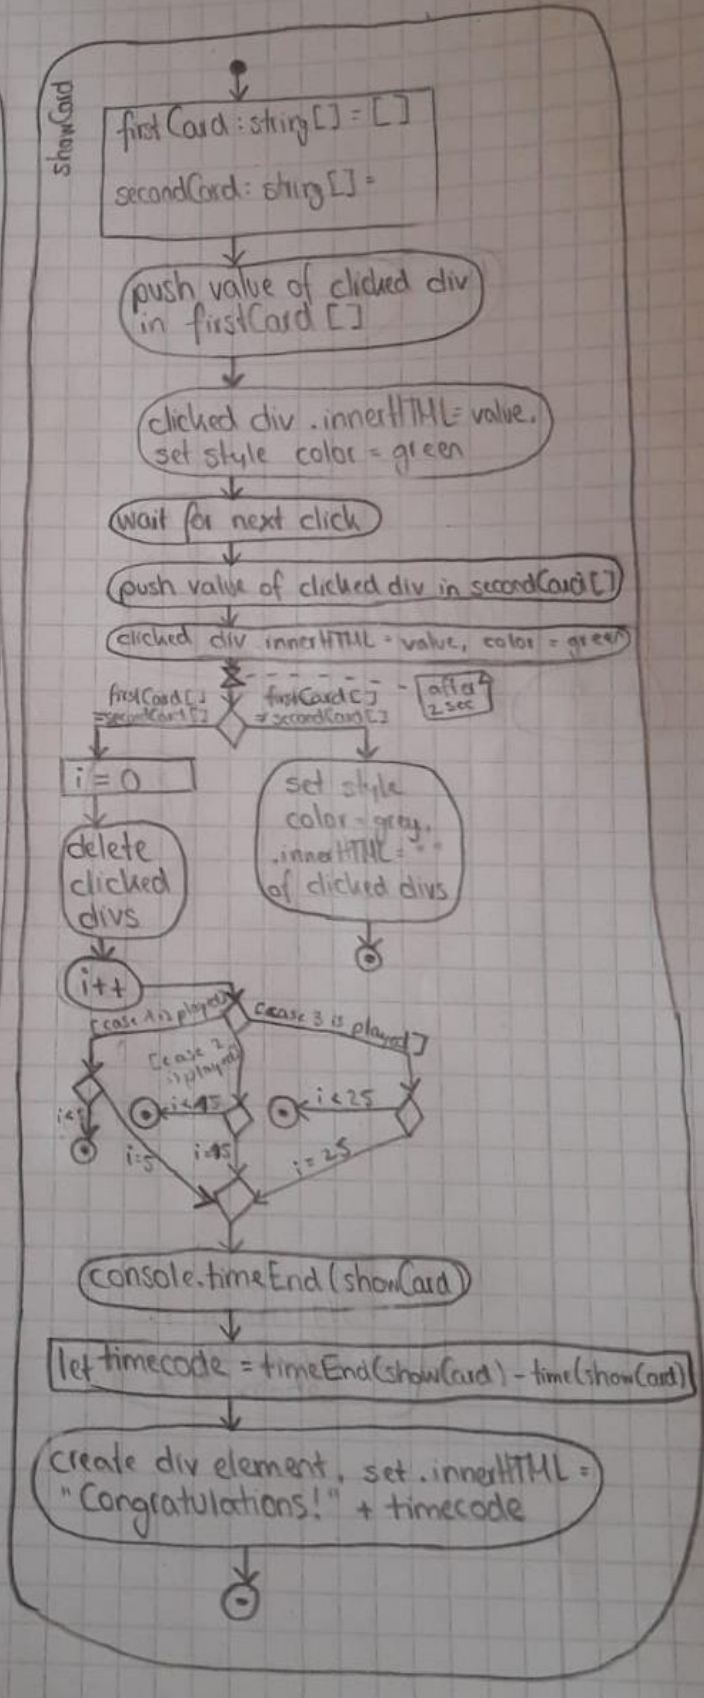 showCard
firstCard: string[] = []
secondCard: string[] =
push value of clicked div
in firstCard []
clicked div .innerHTML = value.
set style color = green
wait for next click
push value of clicked div in secondCard[]
clicked div innerHTML = value, color = green
after
2 sec
firstCard[]
=secondCard[]
firstCard[]
≠secondCard[]
i = 0
set style
color = grey,
.innerHTML = " "
of clicked divs
delete
clicked
divs
i++
is played]
[case 3 is played]
[case 2
is played]
i<
i<15
i<25
i=5
i=15
i = 25
console.timeEnd(showCard)
let timecode = timeEnd(showCard) - time(showCard)
create div element, set .innerHTML =
"Congratulations!" + timecode